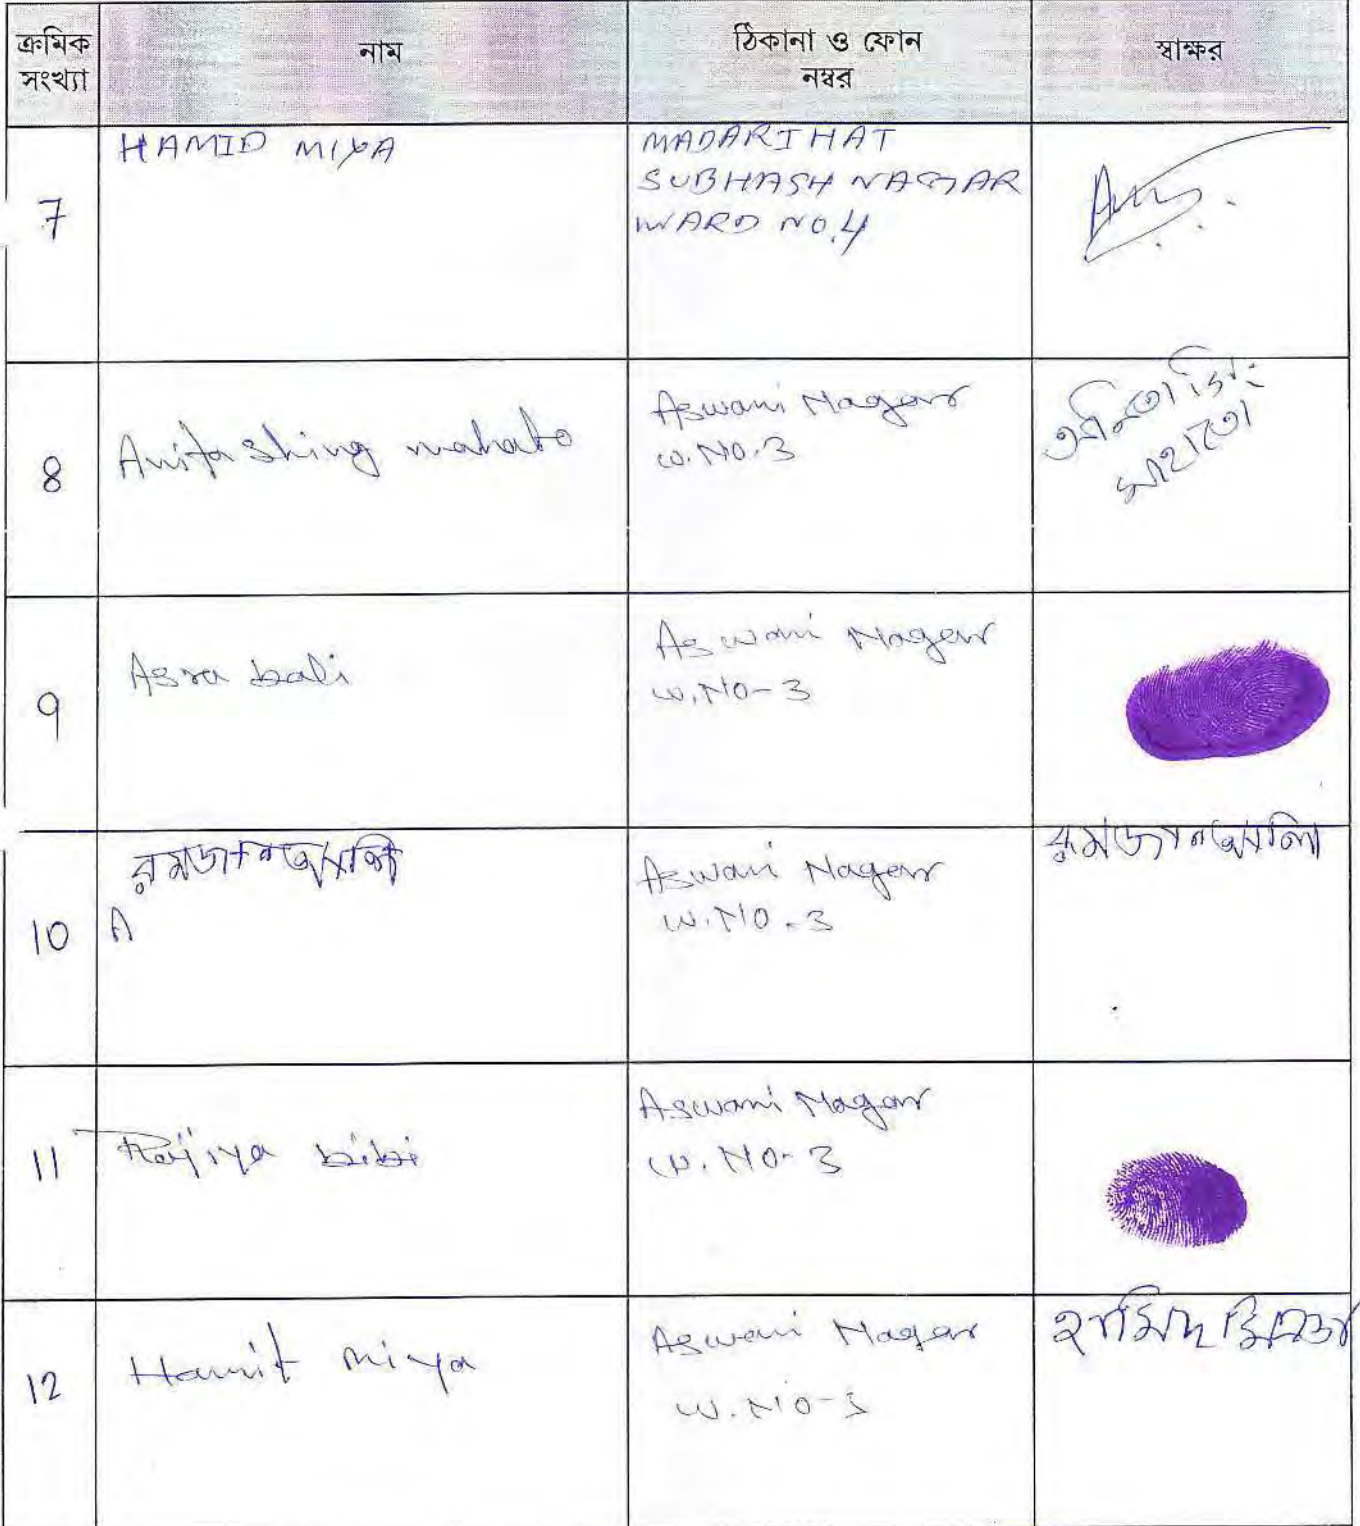 ক্রমিক সংখ্যা
নাম
ঠিকানা ও ফোন নম্বর
স্বাক্ষর
7
HAMID MIYA
MADARIHAT
SUBHASH NAGAR
WARD NO.4
8
Anita Shing mahato
Aswani Nagar
W.NO.3
অনিতা সিং
মাহাতো
9
Asra bali
Aswani Nagar
W.NO-3
10
রমজান আলি
A
Aswani Nagar
W.NO-3
রমজান আলি
11
Rejiya bibi
Aswani Nagar
W.NO-3
12
Hamit miya
Aswani Nagar
W.NO-3
হামিদ মিঞা